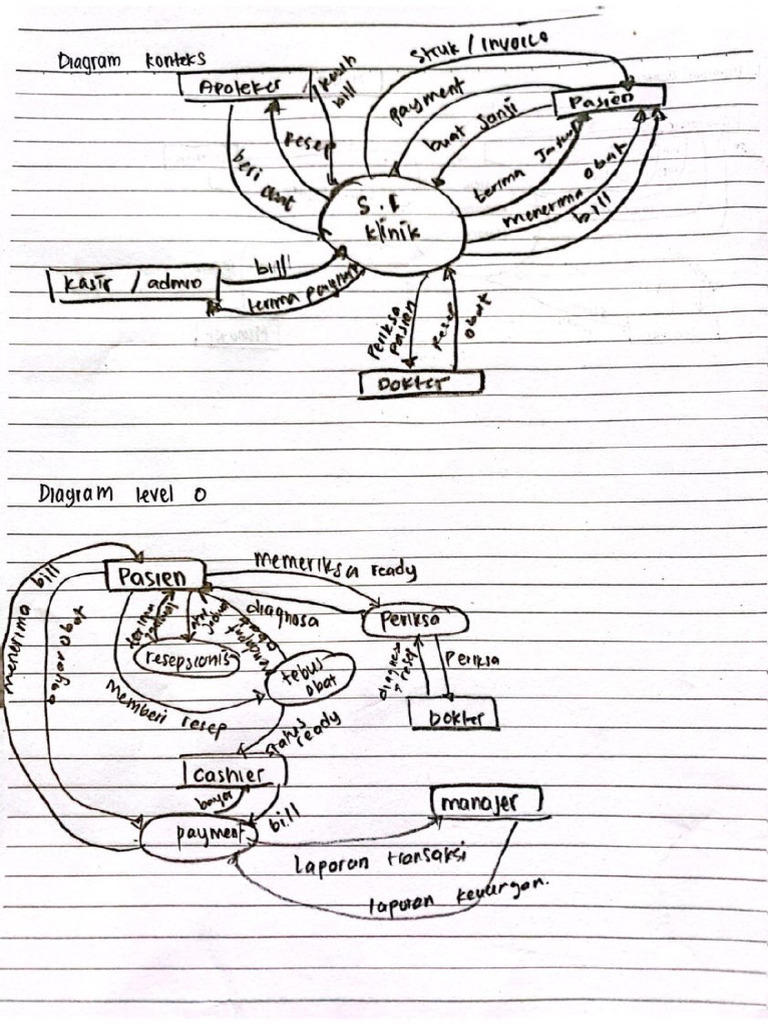 Diagram konteks
Struk / Invoice
Apoteker
kasih bill
payment
Pasien
resep
buat Janji
beri obat
terima Jadwal
menerima obat
bill
S.I
klinik
bill
kasir / admin
terima payment
Periksa
Pasien
resep
obat
Dokter
Diagram level 0
menerima bill
Pasien
memeriksa ready
bayar obat
terima
jadwal
diagnosa
Periksa
resepsionis
tebus
obat
diagnosa
resep
Periksa
memberi resep
Dokter
status
ready
cashier
bayar
bill
manajer
payment
laporan transaksi
laporan keuangan.